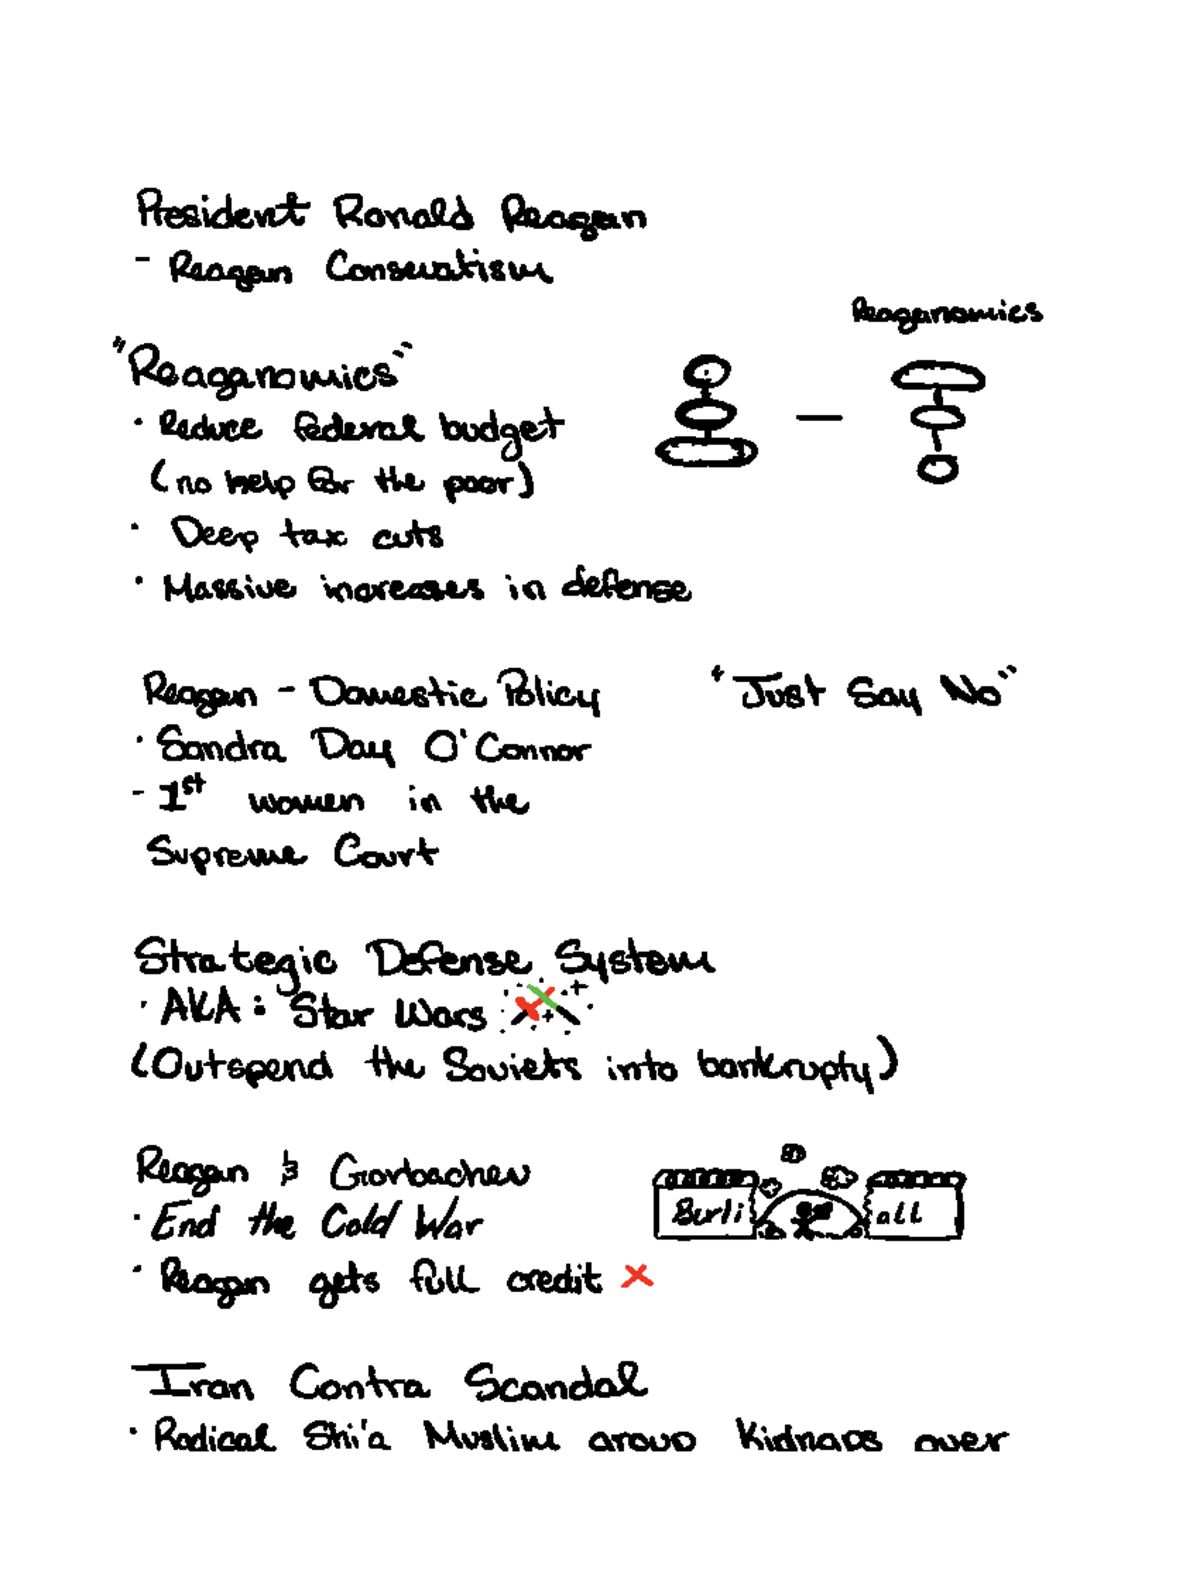 President Ronald Reagan
- Reagan Conservatism
Reaganomics
"Reaganomics"
· Reduce federal budget
(no help for the poor)
· Deep tax cuts
· Massive increases in defense
Reagan - Domestic Policy
"Just Say No"
· Sandra Day O'Connor
- 1st women in the
Supreme Court
Strategic Defense System
· AKA: Star Wars
(Outspend the Soviets into bankrupty)
Reagan & Gorbachev
Berli all
· End the Cold War
· Reagan gets full credit
Iran Contra Scandal
· Radical Shi'a Muslim group kidnaps over